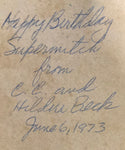 Happy Birthday
Supermitch
from
C.C. and
Hilda Beck
June 6, 1973